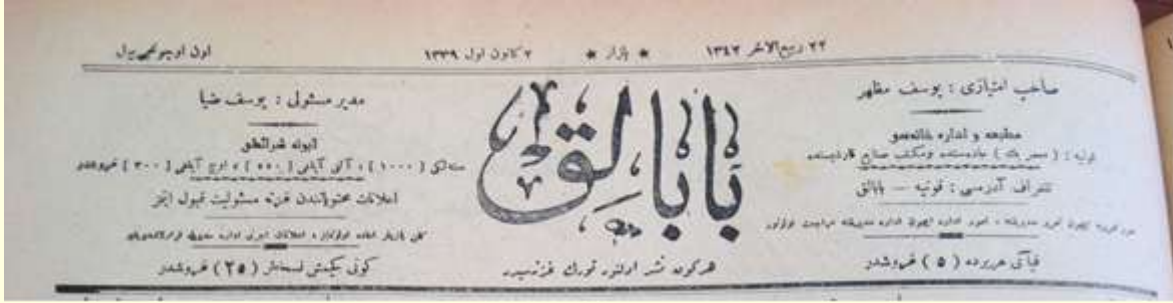 ٢٢ ربيع الآخر ١٣٤٢ * بازار * ٢ كانون اول ١٣٣٩ اون اوچونجى ييل
صاحب امتيازى : يوسف مظهر
مطبعه و اداره خانه‌سى
قونيه :
تلغراف آدرسى : قونيه — بابالق
فيآتى هر يرده ( ٥ ) غروشدر
بابالق
هر كون نشر اولنور تورك غزته‌سيدر
مدير مسئولى : يوسف ضيا
آبونه شرائطى
سنه‌لكى ( ١٠٠٠ ) ، آلتى آيلغى ( ٥٥٠ ) ، اوچ آيلغى ( ٣٠٠ ) غروشدر
اعلانات محتوياتندن غزته مسئوليت قبول ايتمز
كونى كچمش نسخه‌لر ( ٢٥ ) غروشدر